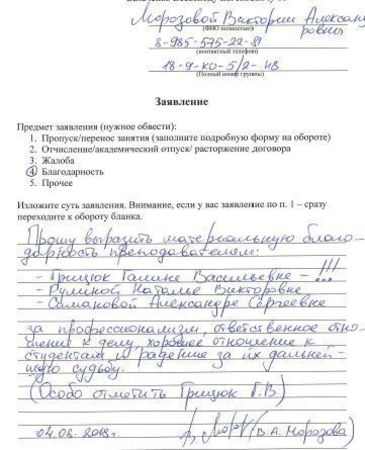 Морозовой Виктории Александ
ровны
(ФИО полностью)
8-985-575-22-81
(контактный телефон)
18-9-КО-5/2-НВ
(Полный номер группы)
Заявление
Предмет заявления (нужное обвести):
1. Пропуск/перенос занятия (заполните подробную форму на обороте)
2. Отчисление/академический отпуск/ расторжение договора
3. Жалоба
4. Благодарность
5. Прочее
Изложите суть заявления. Внимание, если у вас заявление по п. 1 – сразу
переходите к обороту бланка.
Прошу выразить материальную благо-
дарность преподавателям:
- Грицюк Галине Васильевне - !!!
- Руминой Наталье Викторовне
- Александре Сергеевне
за профессионализм, ответственное отно-
шение к делу, хорошее отношение к
студентам и радение за их дальней-
шую судьбу.
(Особо отметить Грицюк Г.В)
04.08.2018г. (В.А. Морозова)